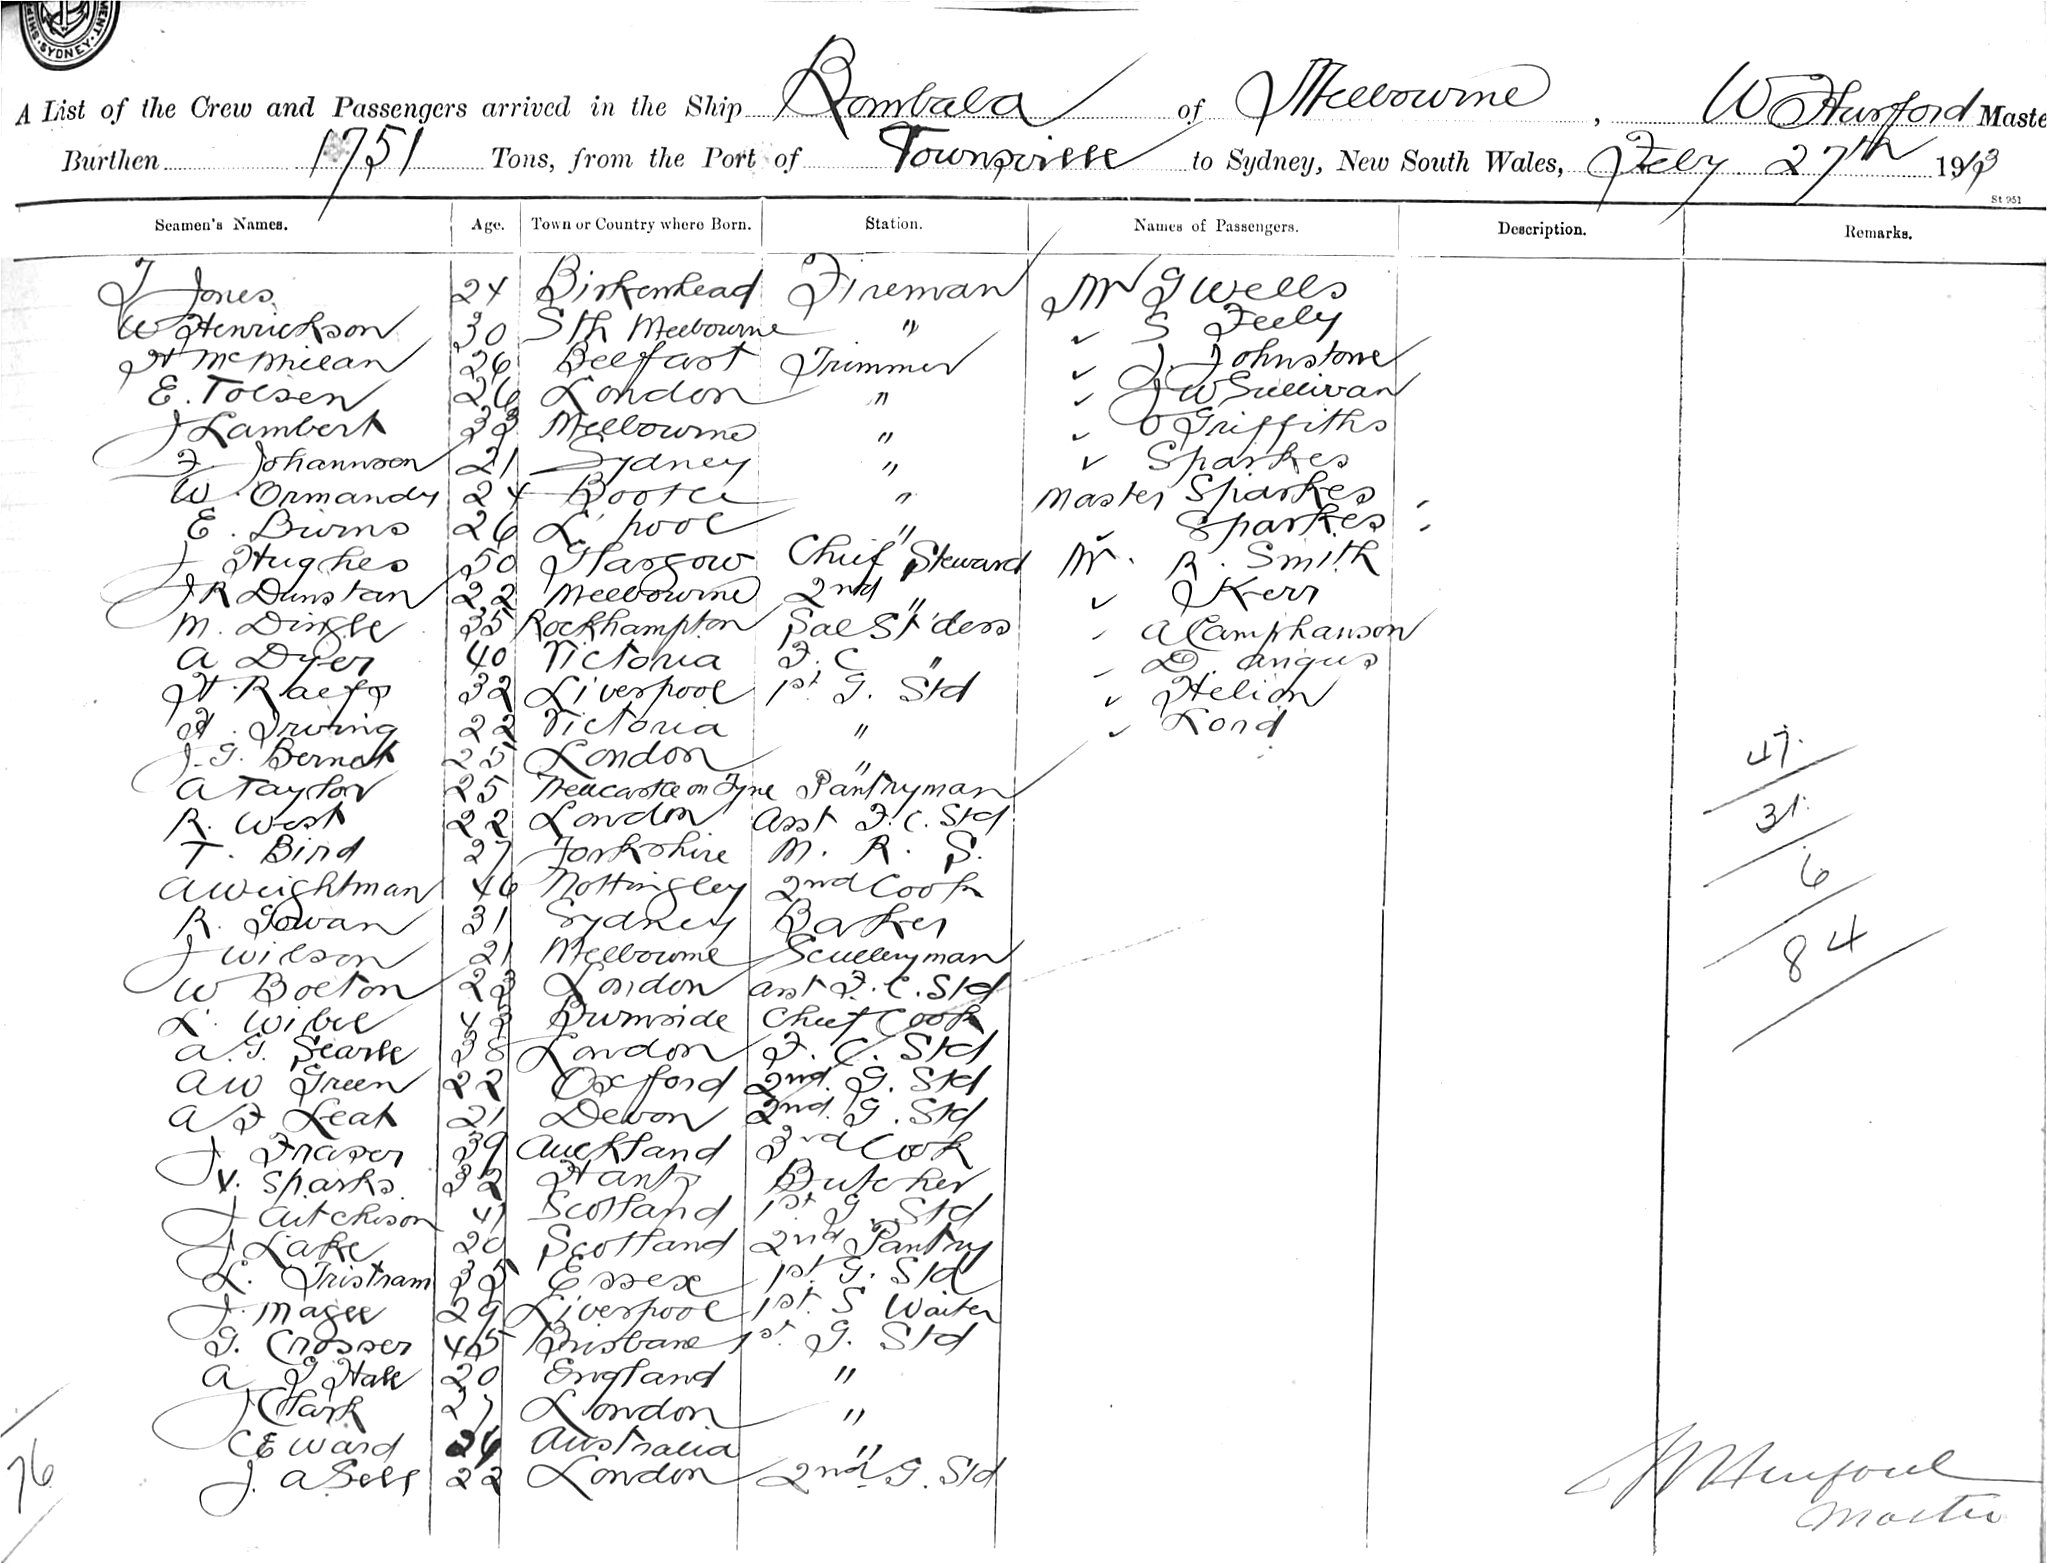 SYDNEY
A List of the Crew and Passengers arrived in the Ship Bombala of Melbourne, W Hurford Maste
Burthen 1751 Tons, from the Port of Townsville to Sydney, New South Wales, Feby 27th 1913
St 951
Seamen's Names. Age. Town or Country where Born. Station. Names of Passengers. Description. Remarks.
T Jones 24 Birkenhead Fireman Mr G Wells
W Henrickson 30 Sth Melbourne " ✓ S Feely
H McMillan 26 Belfast Trimmer ✓ J. Johnstone
E. Tolsen 26 London " ✓ J W Sullivan
J Lambert 33 Melbourne " ✓ O Griffiths
F Johannson 21 Sydney " ✓ Sparkes
W. Ormandy 24 Bootle " Master Sparkes
E. Burns 26 L'pool " Sparkes
J Hughes 50 Glasgow Chief Steward Mr. R. Smith
J R Dunstan 22 Melbourne 2nd " ✓ J Kerr
M. Dingle 35 Rockhampton Sal St'dess A Camphauson
A Dyer 40 Victoria F. C " D. Angus
H. Raefs 32 Liverpool 1st G. Std ✓ Helion
H. Irving 22 Victoria " ✓ Lond
J. G. Bernat 25 London "
47.
A Taylor 25 Newcastle on Tyne Pantryman
R. West 22 London Asst F. C. Std
31.
T. Bird 27 Yorkshire M. R. S.
A Weightman 46 Nottingley 2nd Cook
6
R. Gowan 31 Sydney Baker
J Wilson 21 Melbourne Sculleryman
84
W Bolton 23 London Asst F. C. Std
L. Wible 43 Burnside Chief Cook
A. G. Searle 38 London F. C. Std
A W Green 22 Oxford 2nd. G. Std
A F Leat 21 Devon 2nd. G. Std
J Fraser 39 Auckland 3rd Cook
V. Sparks 32 Hants Butcher
J Aitchison 41 Scotland 1st G. Std
J Lake 20 Scotland 2nd Pantry
L. Tristram 35 Essex 1st. G. Std
J. Magee 29 Liverpool 1st. S Waiter
G. Crosser 45 Brisbane 1st. G. Std
A G Hale 20 England "
J Clark 27 London "
C E Ward 26 Australia "
J. A Sell 22 London 2nd. G. Std
76
W Hurford
Master